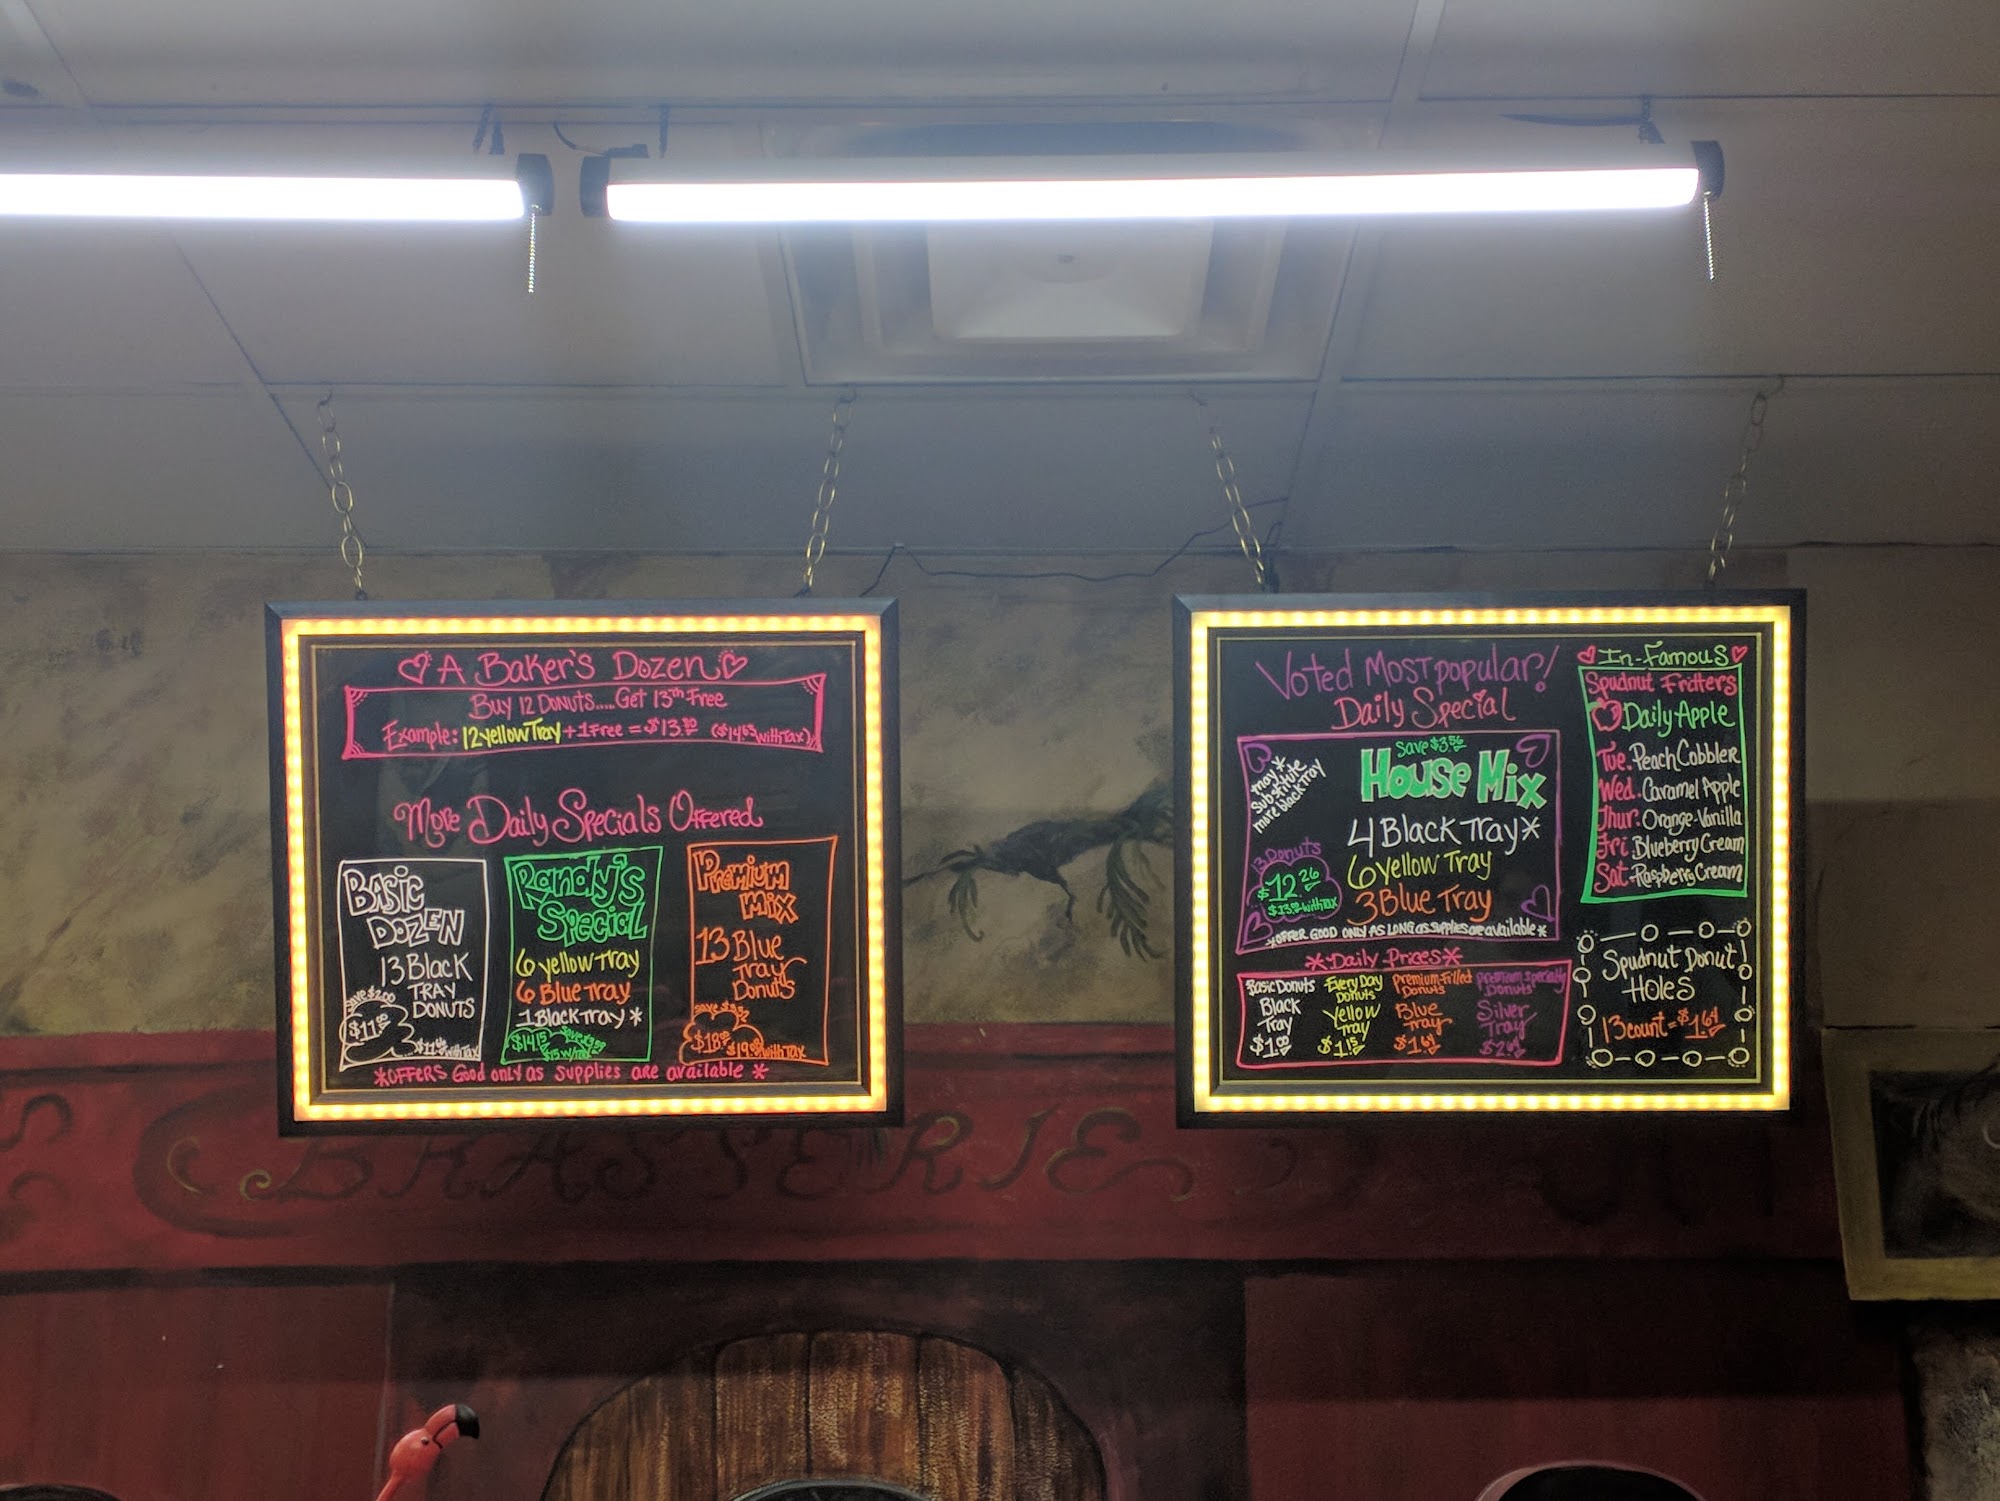 A Baker's Dozen
Buy 12 Donuts.....Get 13th Free
Example: 12 yellow Tray + 1 Free = $13.80 ($14.63 with Tax)
More Daily Specials Offered
Basic
Dozen
13 Black
Tray
Donuts
Save $2.00
with Tax
Randy's
Special
6 yellow Tray
6 Blue Tray
1 Black Tray *
$14.15
Premium
Mix
13 Blue
Tray
Donuts
with Tax
*OFFERS Good only as supplies are available *
Voted Most popular!
Daily Special
may *
Substitute
more black tray
Save $3.56
House Mix
4 Black Tray*
6 yellow Tray
3 Blue Tray
13 Donuts
$12.26
with Tax
*OFFER GOOD ONLY AS LONG AS supplies are available *
*Daily Prices*
Basic Donuts
Black
Tray
Every Day
Donuts
yellow
Tray
$1.15
Premium-Filled
Donuts
Blue
Tray
$1.64
Premium Specialty
Donuts
Silver
Tray
In-Famous
Spudnut Fritters
Daily Apple
Tue. Peach Cobbler
Wed. Caramel Apple
Thur. Orange-Vanilla
Fri. Blueberry Cream
Sat. Raspberry Cream
Spudnut Donut
Holes
13 count = $1.64
BRASSERIE